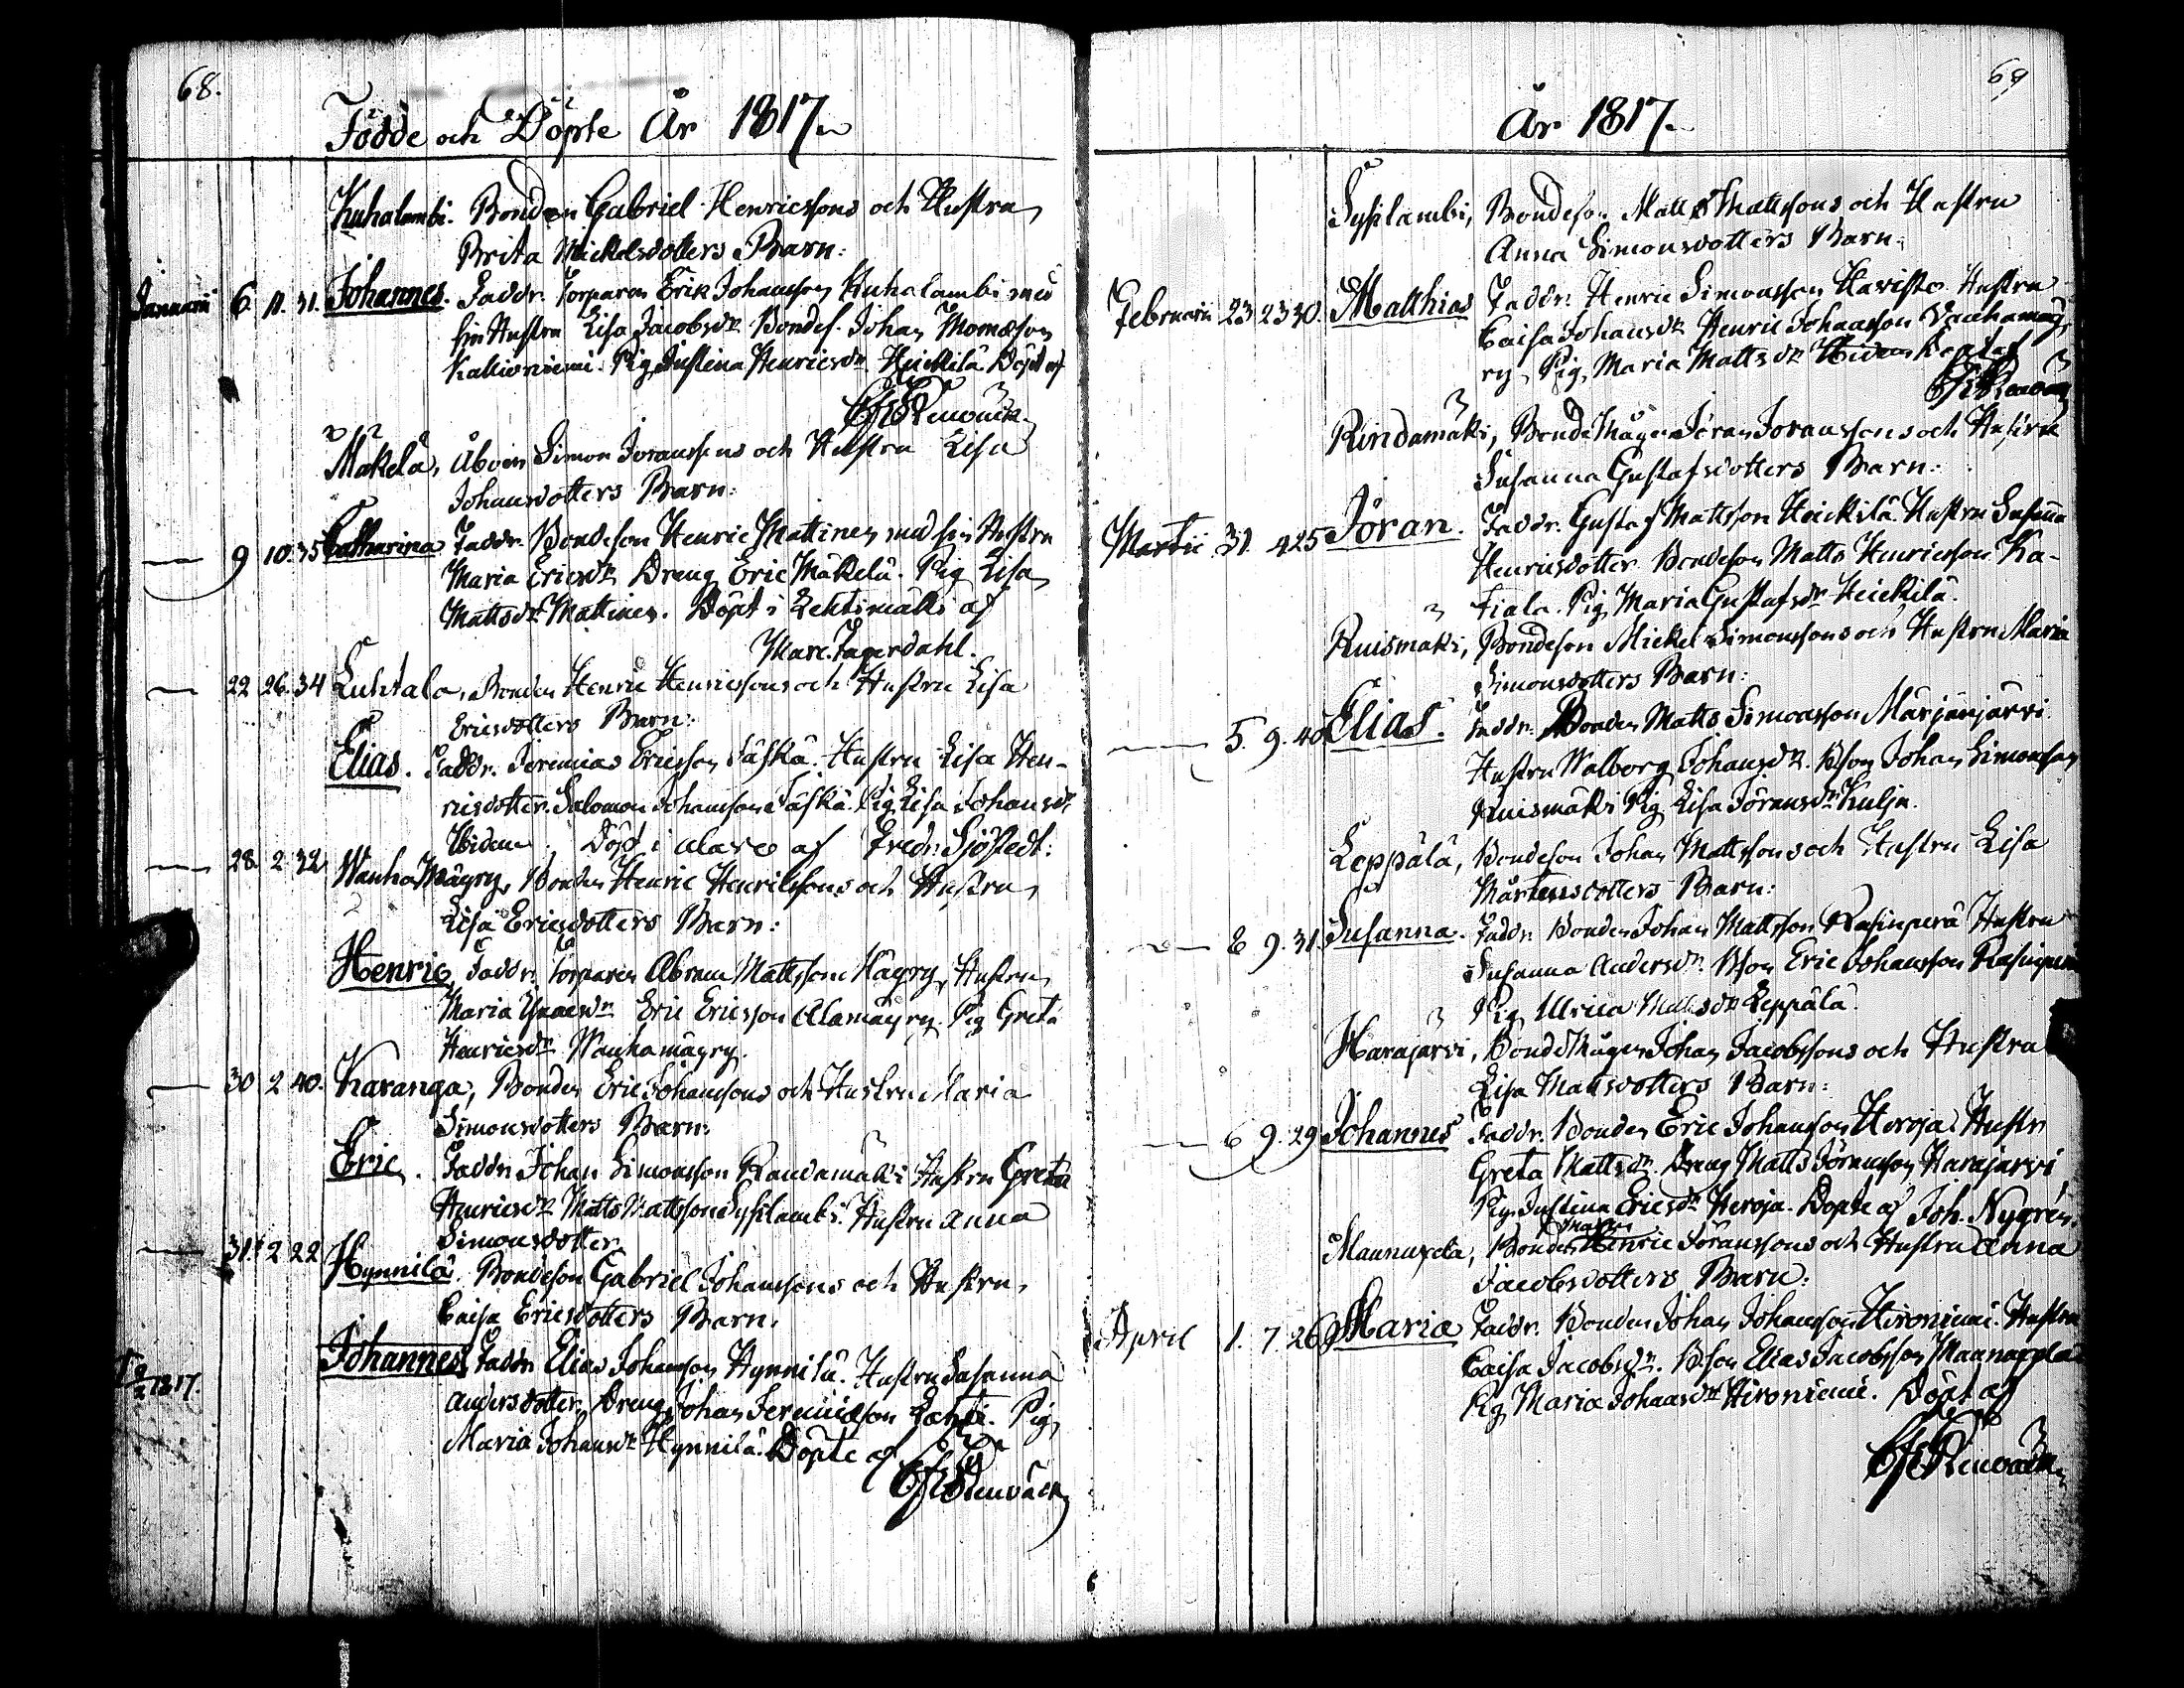 68.
Födde och Döpte År 1817.
Kuhalambi. Bonden Gabriel Henricssons och Hustru
Brita Mickelsdotters Barn:
Januarii 6. 11. 31. Johannes. Faddr. Torparen Erik Johansson Kuhalambi med
sin Hustru Lisa Jacobsdr. Bondes. Johan Thomæson
Kallioniemi. Pig. Justina Henricsdr. Heickilä Döpt af
Mäkelä, Åboen Simon Joranssons och Hustru Lisa
Johansdotters Barn:
9 10. 35 Catharina Faddr. Bondeson Henric Mattinen med sin Hustru
Maria Ericsdr. Dreng Eric Mäkelä. Pig. Lisa
Mattsdr. Mattinen. Döpt i Lehtimäki af
Marc. Fagerdahl.
22 26. 34 Luhtala, Bonden Henric Henricssons och Hustru Lisa
Ericsdotters Barn:
Elias. Faddr. Jeremias Ericsson Säskä. Hustru Lisa Hen-
ricsdotter. Salomon Johansson Säskä. Pig. Lisa Johansdr.
Ibidem. Döpt i Alavo af Fredr. Sjöstedt:
28. 2 32 Wanha Mäyry, Bonden Henric Henrikssons och Hustru
Lisa Ericsdotters Barn:
Henric, Faddr. Torparen Abram Mattsson Mäyry, Hustru
Maria Isaacsdr. Eric Ericsson Alamäyry. Pig. Greta
Henricsdr. Wanhamäyry.
30 2 40. Karanga, Bonden Eric Johanssons och Hustru Maria
Simonsdotters Barn:
Eric. Faddr. Johan Simonsson Randamäki Hustru Greta
Henricsdr. Matts Mattsson Sysilambi. Hustru Anna
Simonsdotter
31. 2 22 Hynnilä. Bondeson Gabriel Johanssons och Hustru
Caisa Ericsdotters Barn.
Johannes. Faddr. Elias Johansson Hynnilä. Hustru Susanna
Andersdotter, Dreng Johan Jeremiæson Lahti. Pig.
1817.
Maria Johansdr. Hynnilä. Döpte af
69
År 1817.
Sysilambi, Bondeson Matts Mattssons och Hustru
Anna Simonsdotters Barn:
Februarii 23 23 30. Matthias Faddr. Henric Simonsson Havisto. Hustru
Caisa Johansdr. Henric Johansson Vanhamäy
ry, Pig. Maria Mattsdr. Ibidem
Rindamäki, Bonde Mågen Jöran Joranssons och Hustru
Susanna Gustafsdotters Barn:
Martii 31. 4 25 Jöran. Faddr. Gustaf Mattsson Heickilä. Hustru Susanna
Henricsdotter. Bondeson Matts Henricsson Ka-
tiala. Pig. Maria Gustafsdr. Heickilä.
Ruismäki, Bondeson Mickel Simonssons och Hustru Maria
Simonsdotters Barn:
5. 9. 40 Elias. Faddr. Bonden Matts Simonsson Märjänjärvi
Hustru Walborg Johansdr. Bson Johan Simonsson
Ruismäki Pig. Lisa Jöransdr. Kulju.
Leppälä, Bondeson Johan Mattssons och Hustru Lisa
Mårtensdotters Barn:
8 9. 31. Susanna. Faddr. Bonden Johan Mattsson Rasinperä Hustru
Susanna Andersdr. Bson Eric Johansson Rasinperä
Pig. Ulrica Mattsdr. Leppälä.
Harajärvi, Bonde Mågen Johan Jacobssons och Hustru
Lisa Mattsdotters Barn:
6 9. 29 Johannes Faddr. Bonden Eric Johansson Heroja. Hustr
Greta Mattsdr. Dreng Matts Jöransson Harajärvi
Pig. Justina Ericsdr. Heroja. Döpte af Joh. Nygrén.
Bonden Henric Joranssons och Hustru Anna
Jacobsdotters Barn.
April 1. 7 26 Maria Faddr. Bonden Johan Johansson Hironiemi. Hustru
Caisa Jacobsdr. Bson Elias Jacobsson
Pig. Maria Johansdr. Hironiemi. Döpt af